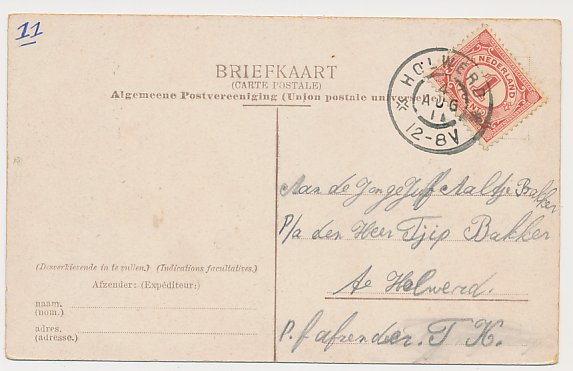 11
BRIEFKAART
(CARTE POSTALE)
Algemeene Postvereeniging (Union postale universelle)
HOLWERD
4
AUG
11
12-8V
NEDERLAND
1
CENT
Aan de Jongejuff Aaltje Bakker
P/a den Heer Tjip Bakker
te Holwerd.
P.f afzender. T K.
(Desverkiezende in te vullen.) (Indications facultatives.)
Afzender: (Expéditeur:)
naam.
(nom.)
adres.
(adresse.)